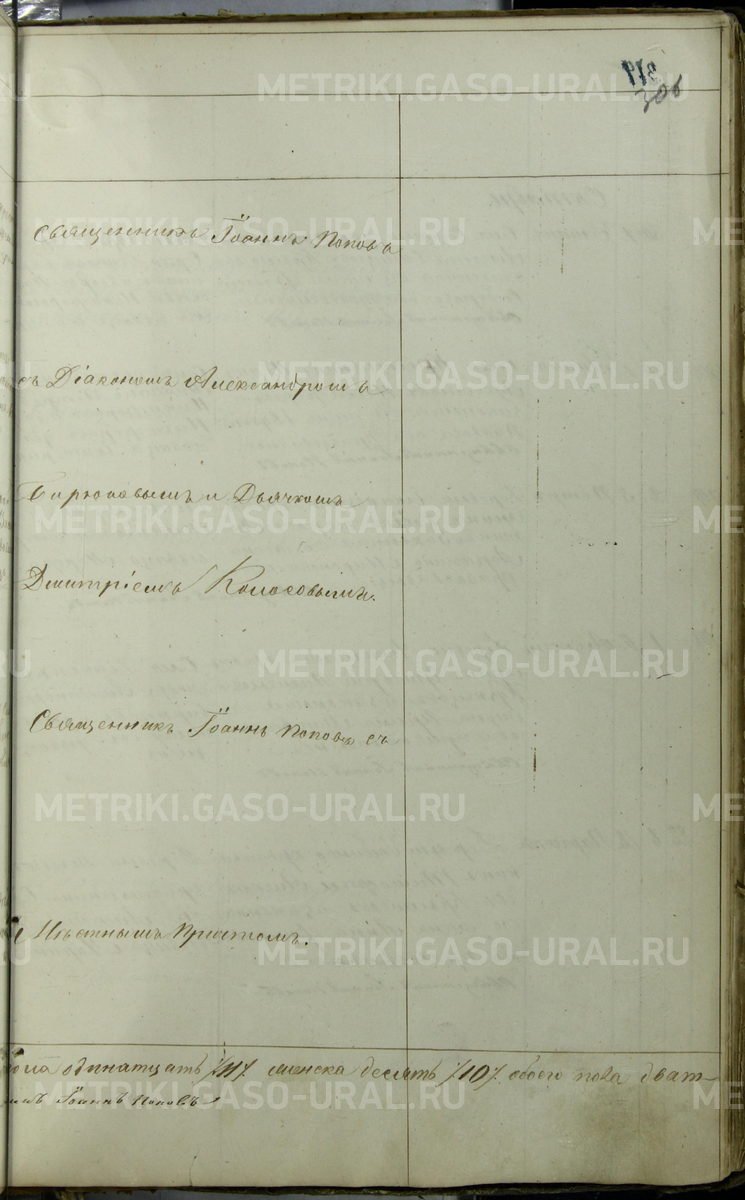 306
Священникъ Іоаннъ Поповъ
съ Діакономъ Александромъ
Бирюковымъ и Дьячкомъ
Дмитріемъ Колосовымъ.
Священникъ Іоаннъ Поповъ съ
Причтомъ.
пола одинатцать /11/. женска десять /10/. обоего пола дват-
Іоаннъ Поповъ
METRIKI.GASO-URAL.RU